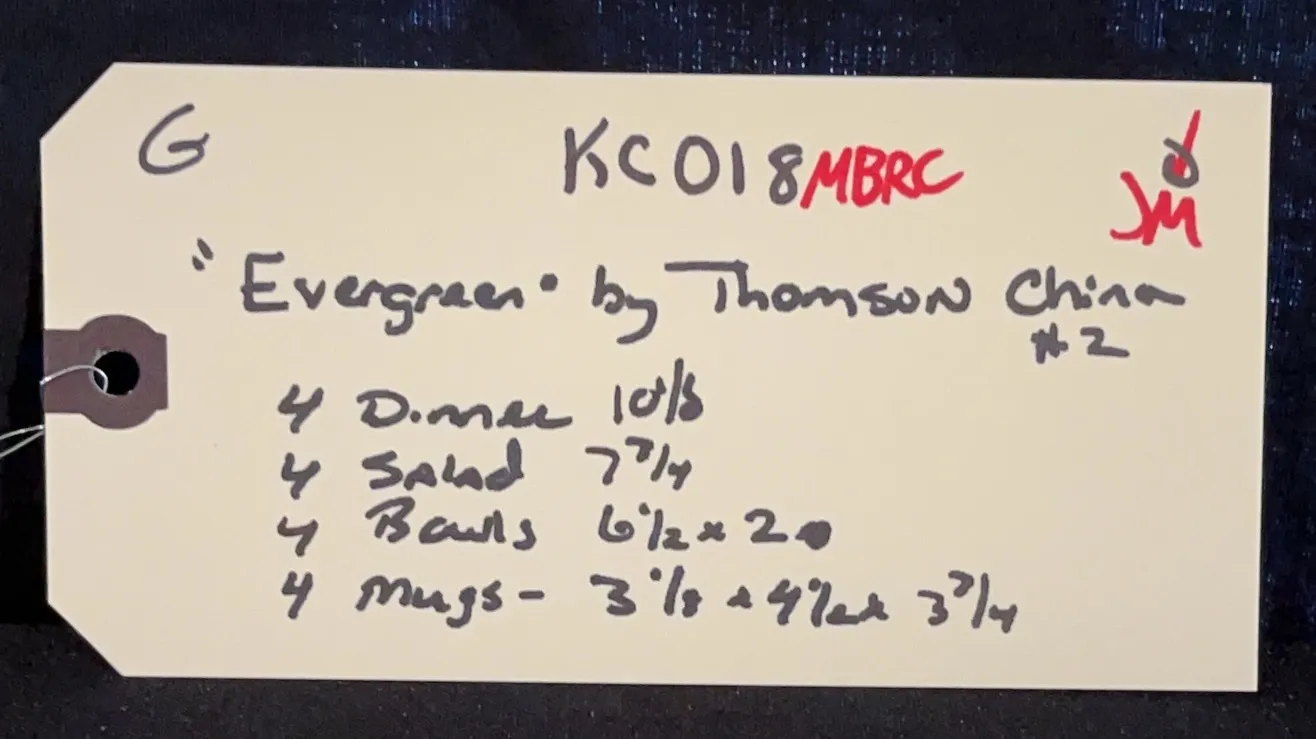 G KC018 MBRC JM
"Evergreen" by Thomson China
#2
4 Dinner 10 1/8
4 Salad 7 3/4
4 Bowls 6 1/2 x 2
4 Mugs - 3 1/8 x 4 1/2 x 3 3/4